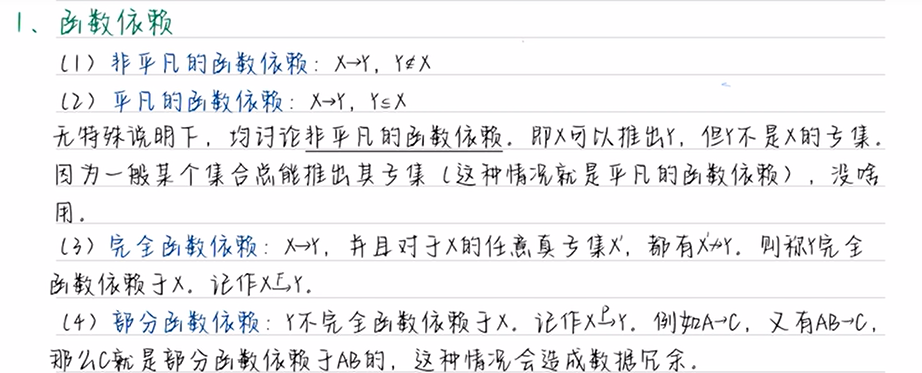 1、函数依赖
(1) 非平凡的函数依赖：X→Y，Y⊄X
(2) 平凡的函数依赖：X→Y，Y⊆X
无特殊说明下，均讨论非平凡的函数依赖。即X可以推出Y，但Y不是X的子集。
因为一般某个集合总能推出其子集（这种情况就是平凡的函数依赖），没啥
用。
(3) 完全函数依赖：X→Y，并且对于X的任意真子集X'，都有X'↛Y。则称Y完全
函数依赖于X。记作X-F→Y。
(4) 部分函数依赖：Y不完全函数依赖于X。记作X-P→Y。例如A→C，又有AB→C，
那么C就是部分函数依赖于AB的，这种情况会造成数据冗余。